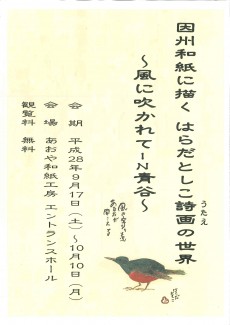 因州和紙に描く はらだとしこ 詩画の世界
うたえ
～風に吹かれてIN青谷～
会 期 平成28年9月17日（土）～10月10日（月）
会 場 あおや和紙工房 エントランスホール
観覧料 無料